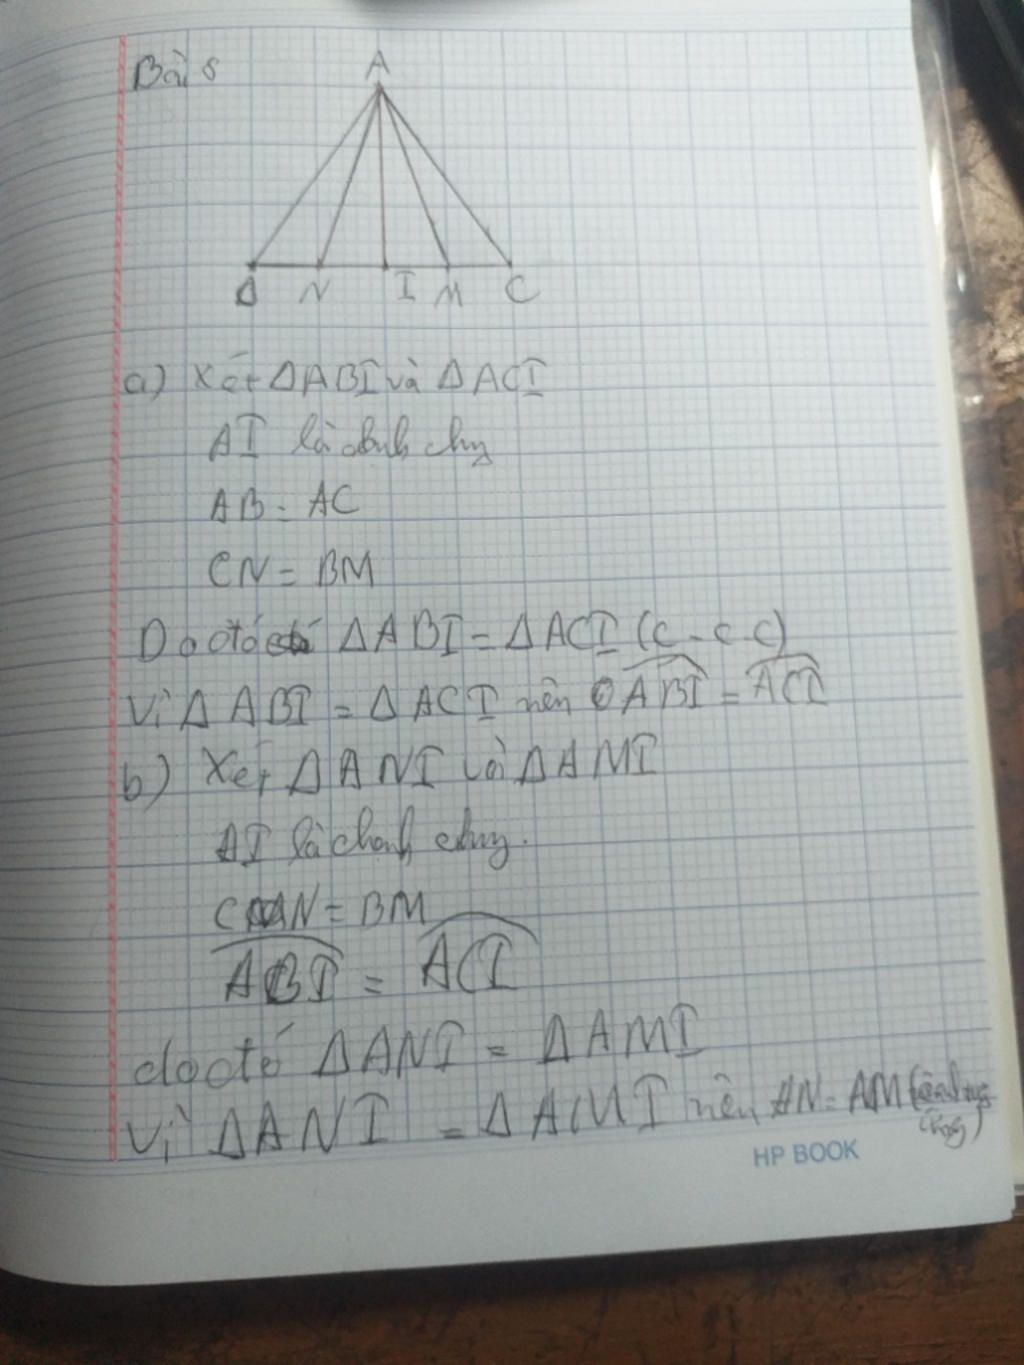 Bài 8
A
B N I M C
a) Xét ΔABI và ΔACI
AI là cạnh chung
AB = AC
CN = BM
Do đó ΔABI = ΔACI (c-c-c)
Vì ΔABI = ΔACI nên ABI = ACI
b) Xét ΔANI và ΔAMI
AI là cạnh chung.
CN = BM
ABI = ACI
do đó ΔANI = ΔAMI
Vì ΔANI = ΔAMI nên AN = AM
HP BOOK